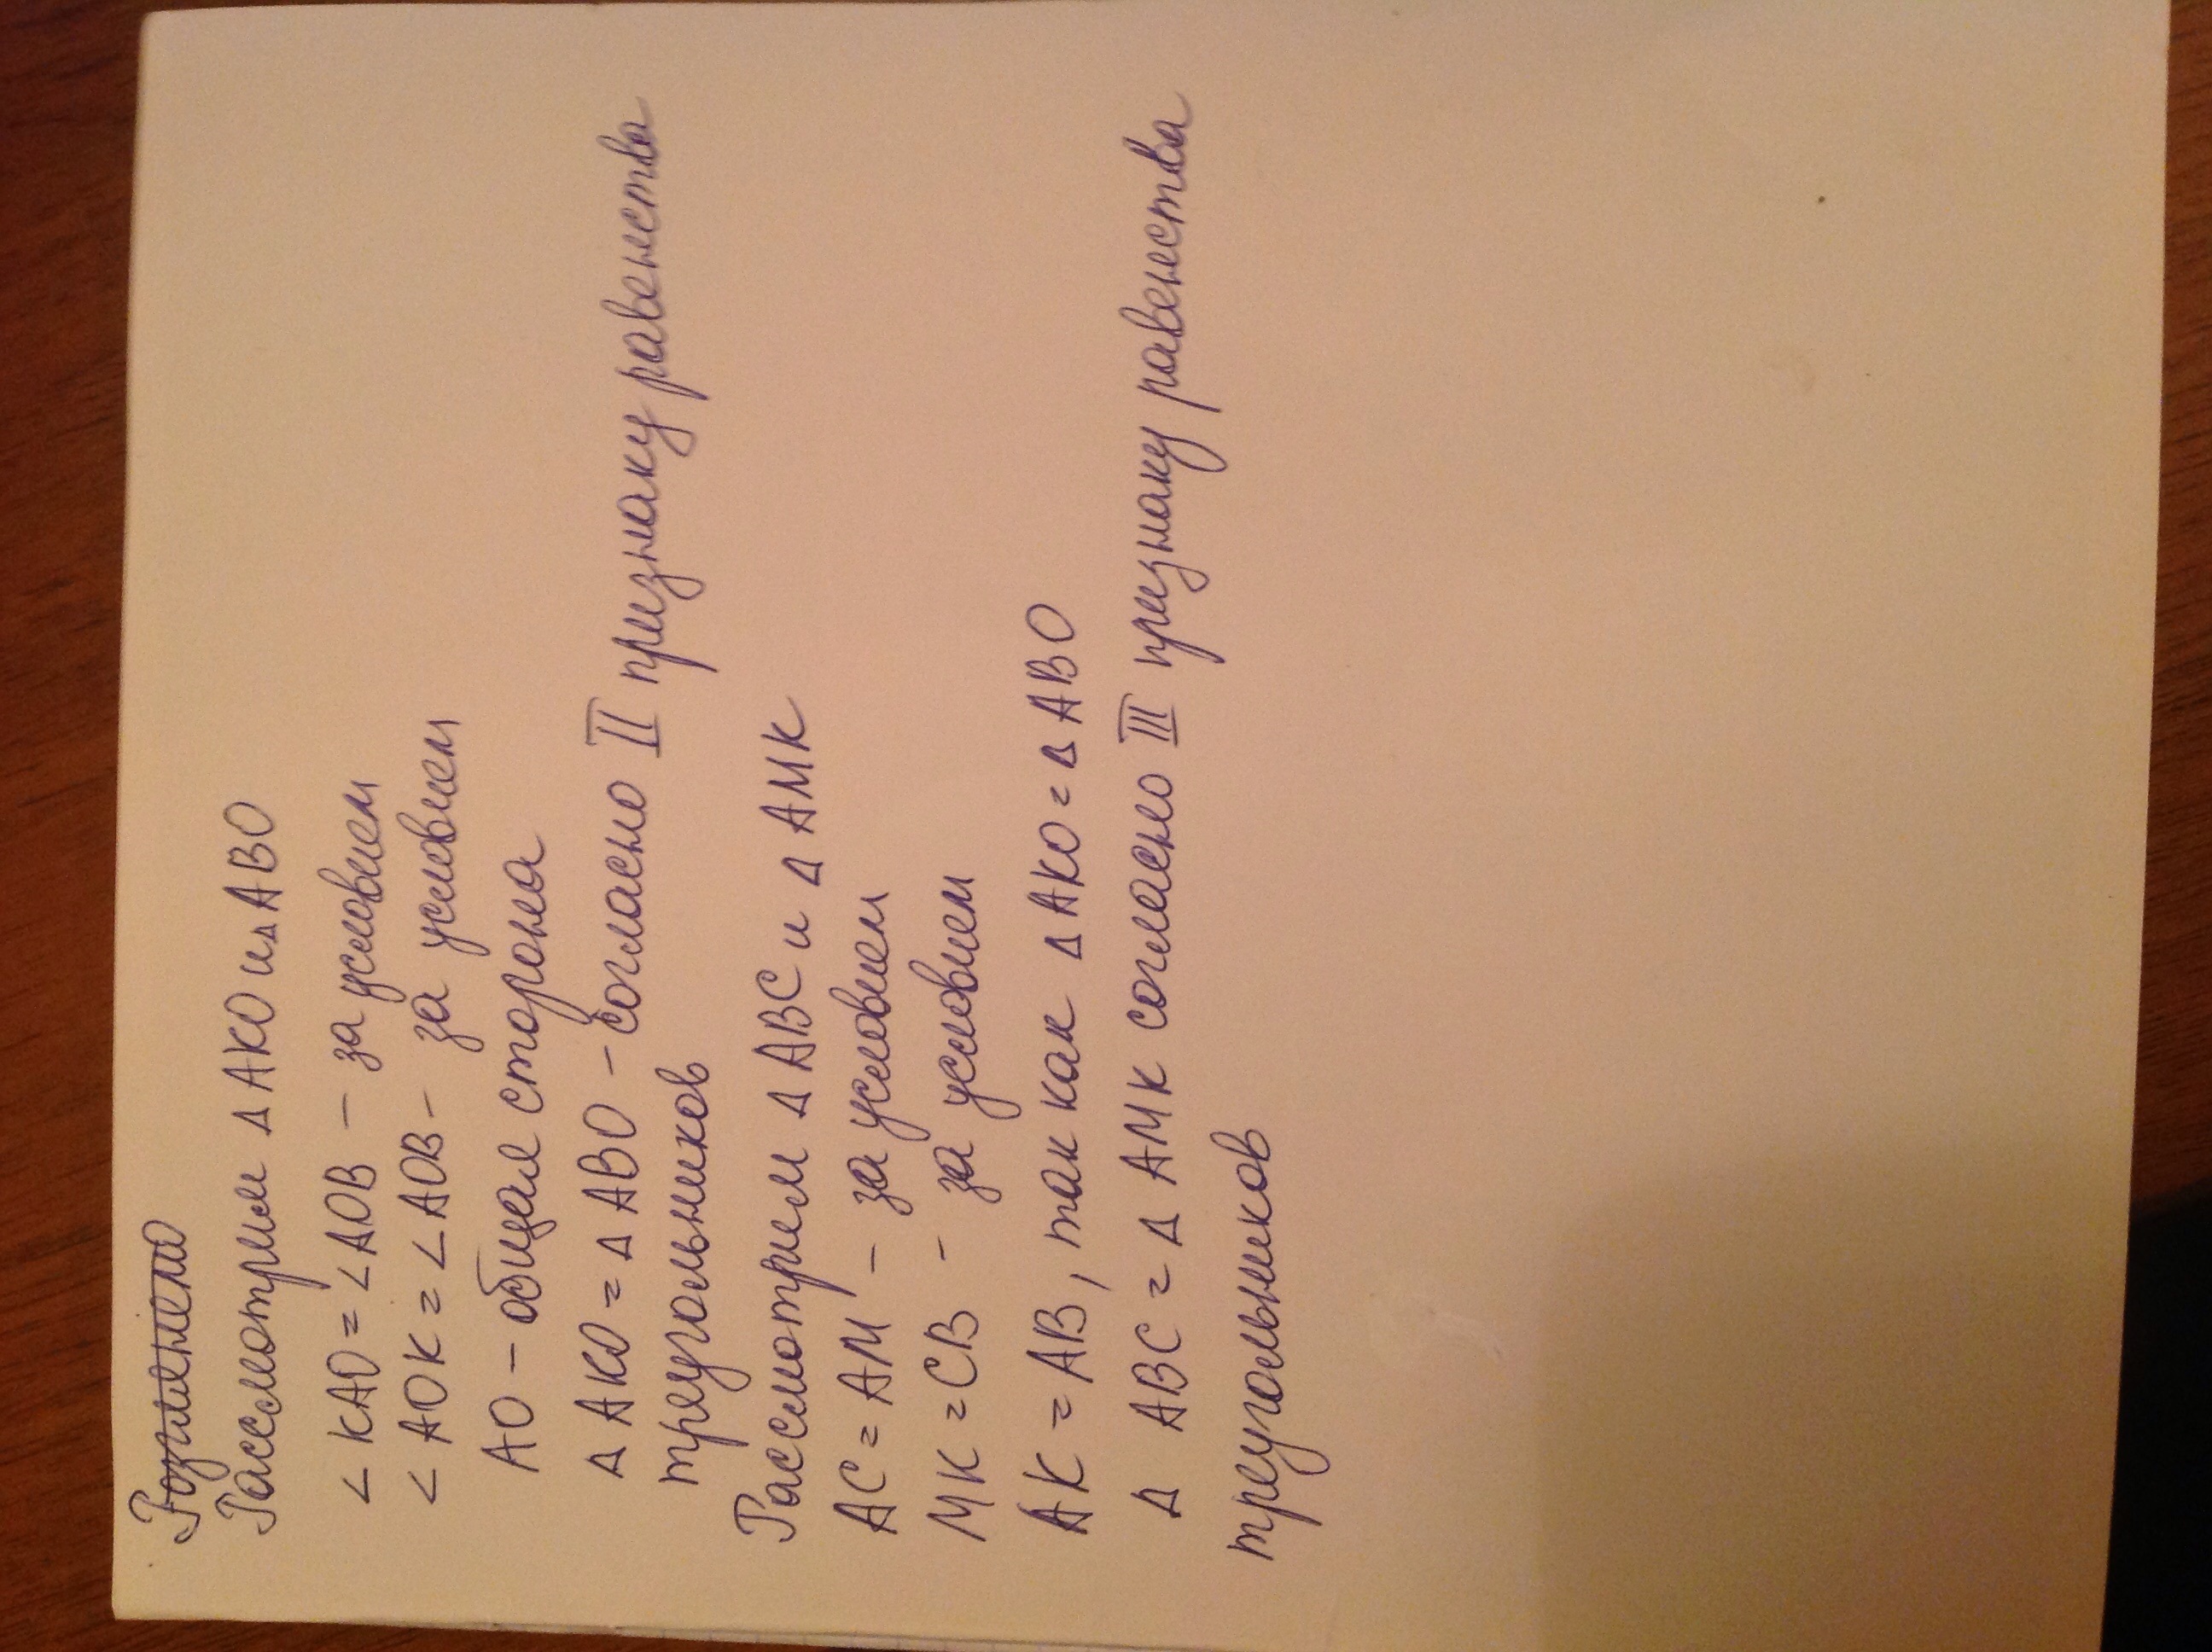 Рассмотрим △ AKO и △ ABO
∠ KAO = ∠AOB – за условием
∠ AOK = ∠AOB – за условием
AO – общая сторона
△ AKO = △ ABO – согласно II признаку равенства
треугольников
Рассмотрим △ ABC и △ AMK
AC = AM – за условием
MK = CB – за условием
AK = AB, так как △ AKO = △ ABO
△ ABC = △ AMK согласно III признаку равенства
треугольников